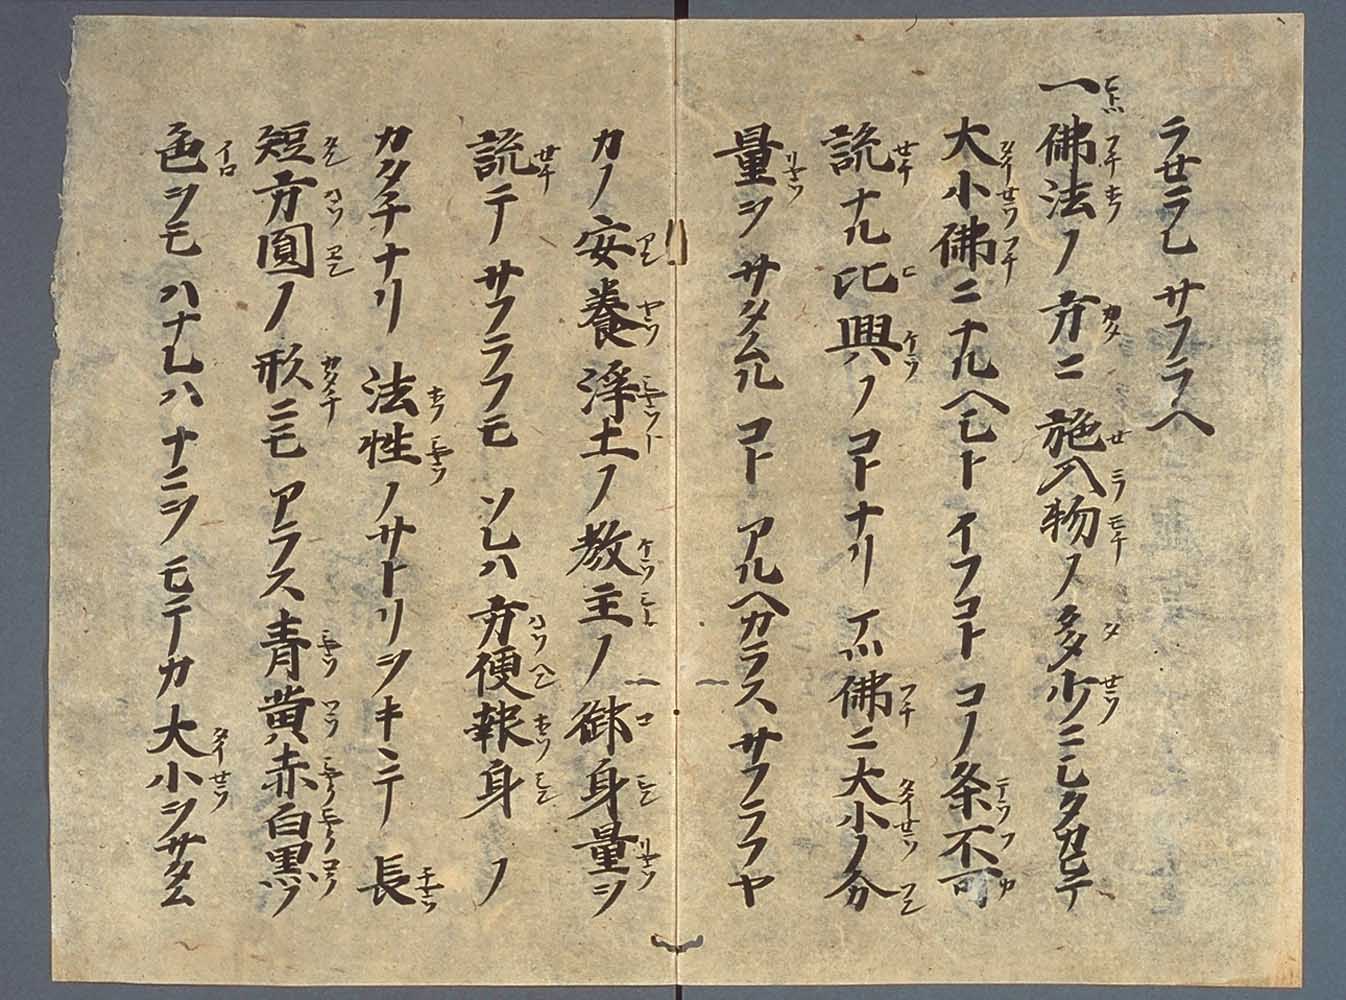 ラセラレ サフラヘ
一佛法ノ 方ニ 施入物ノ 多少ニシタカヒテ
大小佛ニナルヘシト イフコト コノ条不可
説ナル比興ノ コトナリ 佛ニ大小ノ分
量ヲ サタムル コト アルヘカラスサフラフヤ
カノ 安養浄土ノ教主ノ御身量ヲ
説テ サフラフモ ソレハ 方便報身ノ
カタチナリ 法性ノサトリヲ 長
短方圓ノ形ニモ アラス青黄赤白黒ノ
色ヲモ ハナレハ ナニヲ モテカ 大小ヲサタム